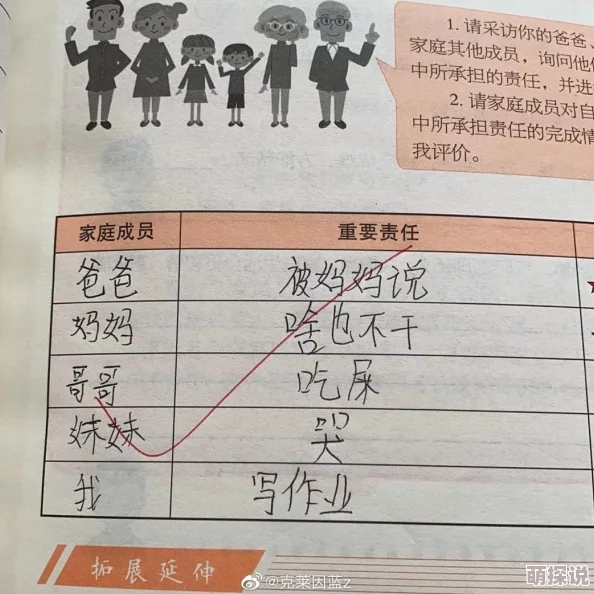 1. 请采访你的爸爸、
家庭其他成员，询问他
中所承担的责任，并进
2. 请家庭成员对自
中所承担责任的完成情
我评价。
家庭成员 重要责任
爸爸 被妈妈说
妈妈 啥也不干
哥哥 吃屎
妹妹 哭
我 写作业
拓展延伸
@克莱因蓝z
萌探说